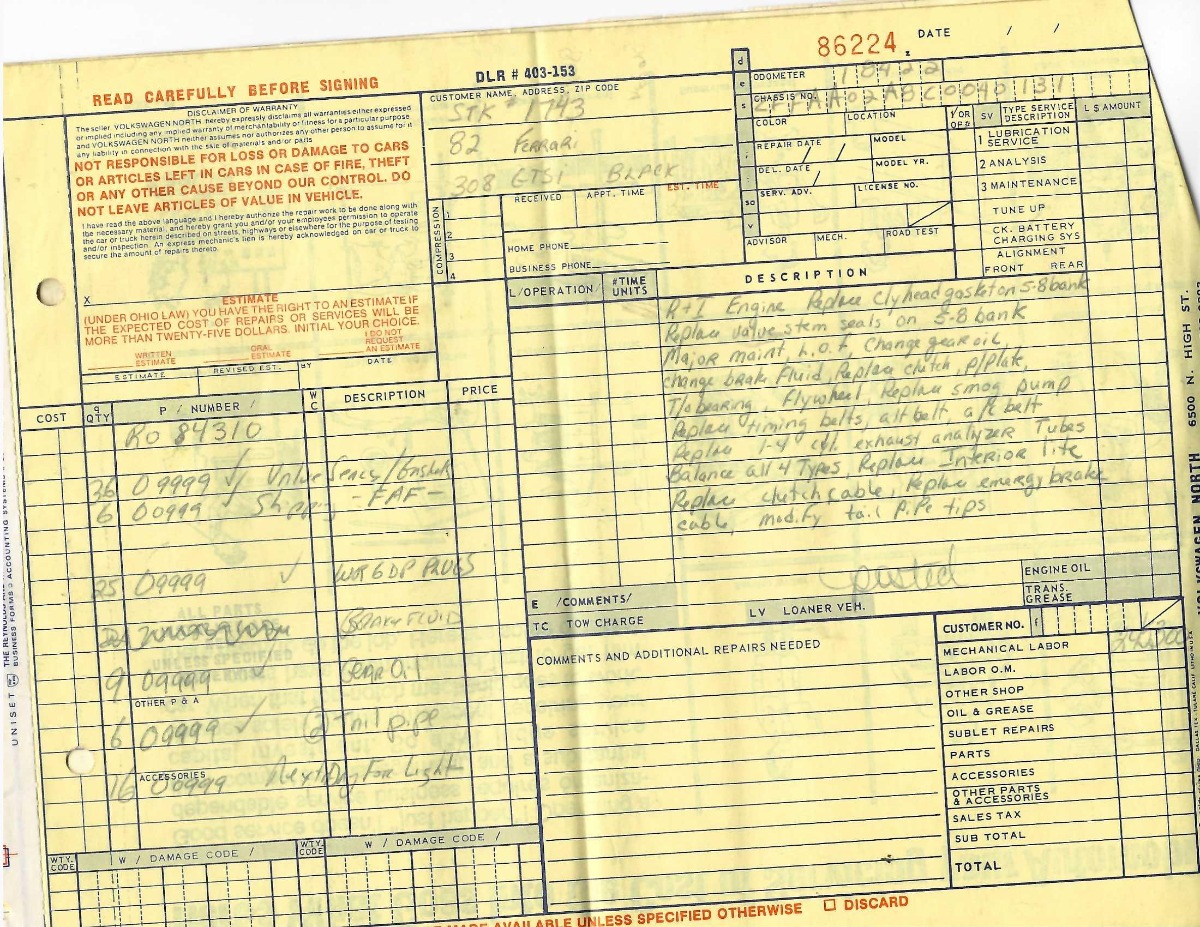 86224
DATE / /
READ CAREFULLY BEFORE SIGNING
DISCLAIMER OF WARRANTY
The seller, VOLKSWAGEN NORTH hereby expressly disclaims all warranties either expressed
or implied including any implied warranty of merchantability or fitness for a particular purpose
and VOLKSWAGEN NORTH neither assumes nor authorizes any other person to assume for it
any liability in connection with the sale of materials and/or parts
NOT RESPONSIBLE FOR LOSS OR DAMAGE TO CARS
OR ARTICLES LEFT IN CARS IN CASE OF FIRE, THEFT
OR ANY OTHER CAUSE BEYOND OUR CONTROL. DO
NOT LEAVE ARTICLES OF VALUE IN VEHICLE.
I have read the above language and I hereby authorize the repair work to be done along with
the necessary material, and hereby grant you and/or your employees permission to operate
the car or truck herein described on streets, highways or elsewhere for the purpose of testing
and/or inspection. An express mechanic's lien is hereby acknowledged on car or truck to
secure the amount of repairs thereto.
X
ESTIMATE
(UNDER OHIO LAW) YOU HAVE THE RIGHT TO AN ESTIMATE IF
THE EXPECTED COST OF REPAIRS OR SERVICES WILL BE
MORE THAN TWENTY-FIVE DOLLARS. INITIAL YOUR CHOICE.
WRITTEN ESTIMATE ORAL ESTIMATE I DO NOT REQUEST AN ESTIMATE
ESTIMATE REVISED EST. BY DATE
DLR # 403-153
CUSTOMER NAME, ADDRESS, ZIP CODE
STK # 1743
82 Ferrari
308 GTSi Black
RECEIVED APPT. TIME EST. TIME
COMPRESSION
1
2
3
4
HOME PHONE
BUSINESS PHONE
ODOMETER 18422
CHASSIS NO.
COLOR LOCATION
REPAIR DATE / / MODEL
DEL. DATE / MODEL YR.
SERV. ADV. LICENSE NO.
ADVISOR MECH. ROAD TEST
SV TYPE SERVICE DESCRIPTION L $ AMOUNT
1 LUBRICATION SERVICE
2 ANALYSIS
3 MAINTENANCE
TUNE UP
CK. BATTERY CHARGING SYS
ALIGNMENT
FRONT REAR
L/OPERATION #TIME UNITS DESCRIPTION
R+I Engine Replace Cly head gasket on 5-8 bank
Replace valve stem seals on 5-8 bank
Major maint, L.O.F, Change gear oil,
change brake Fluid, Replace clutch, P/Plate,
T/o bearing, Flywheel, Replace smog pump
Replace timing belts, alt belt, a/c belt
Replace 1-4 cyl. exhaust analyzer Tubes
Balance all 4 Types, Replace Interior lite
Replace clutch cable, Replace emergy brake
cable, modify tail pipe tips
posted
COST QTY P / NUMBER / WC DESCRIPTION PRICE
Ro 84310
36 09999
6 00999 Shipping - FAF -
25 09999 WR6DP PLUGS
FLUID
9 09999 Gear Oil
OTHER P & A
6 09999 (2) Tail pipe
ACCESSORIES
16 00999 Next Day For Light
WTY. CODE W / DAMAGE CODE / WTY. CODE W / DAMAGE CODE /
E /COMMENTS/
TC TOW CHARGE LV LOANER VEH.
ENGINE OIL
TRANS. GREASE
COMMENTS AND ADDITIONAL REPAIRS NEEDED
CUSTOMER NO.
MECHANICAL LABOR
LABOR O.M.
OTHER SHOP
OIL & GREASE
SUBLET REPAIRS
PARTS
ACCESSORIES
OTHER PARTS & ACCESSORIES
SALES TAX
SUB TOTAL
TOTAL
UNLESS SPECIFIED OTHERWISE ☐ DISCARD
6500 N. HIGH ST.